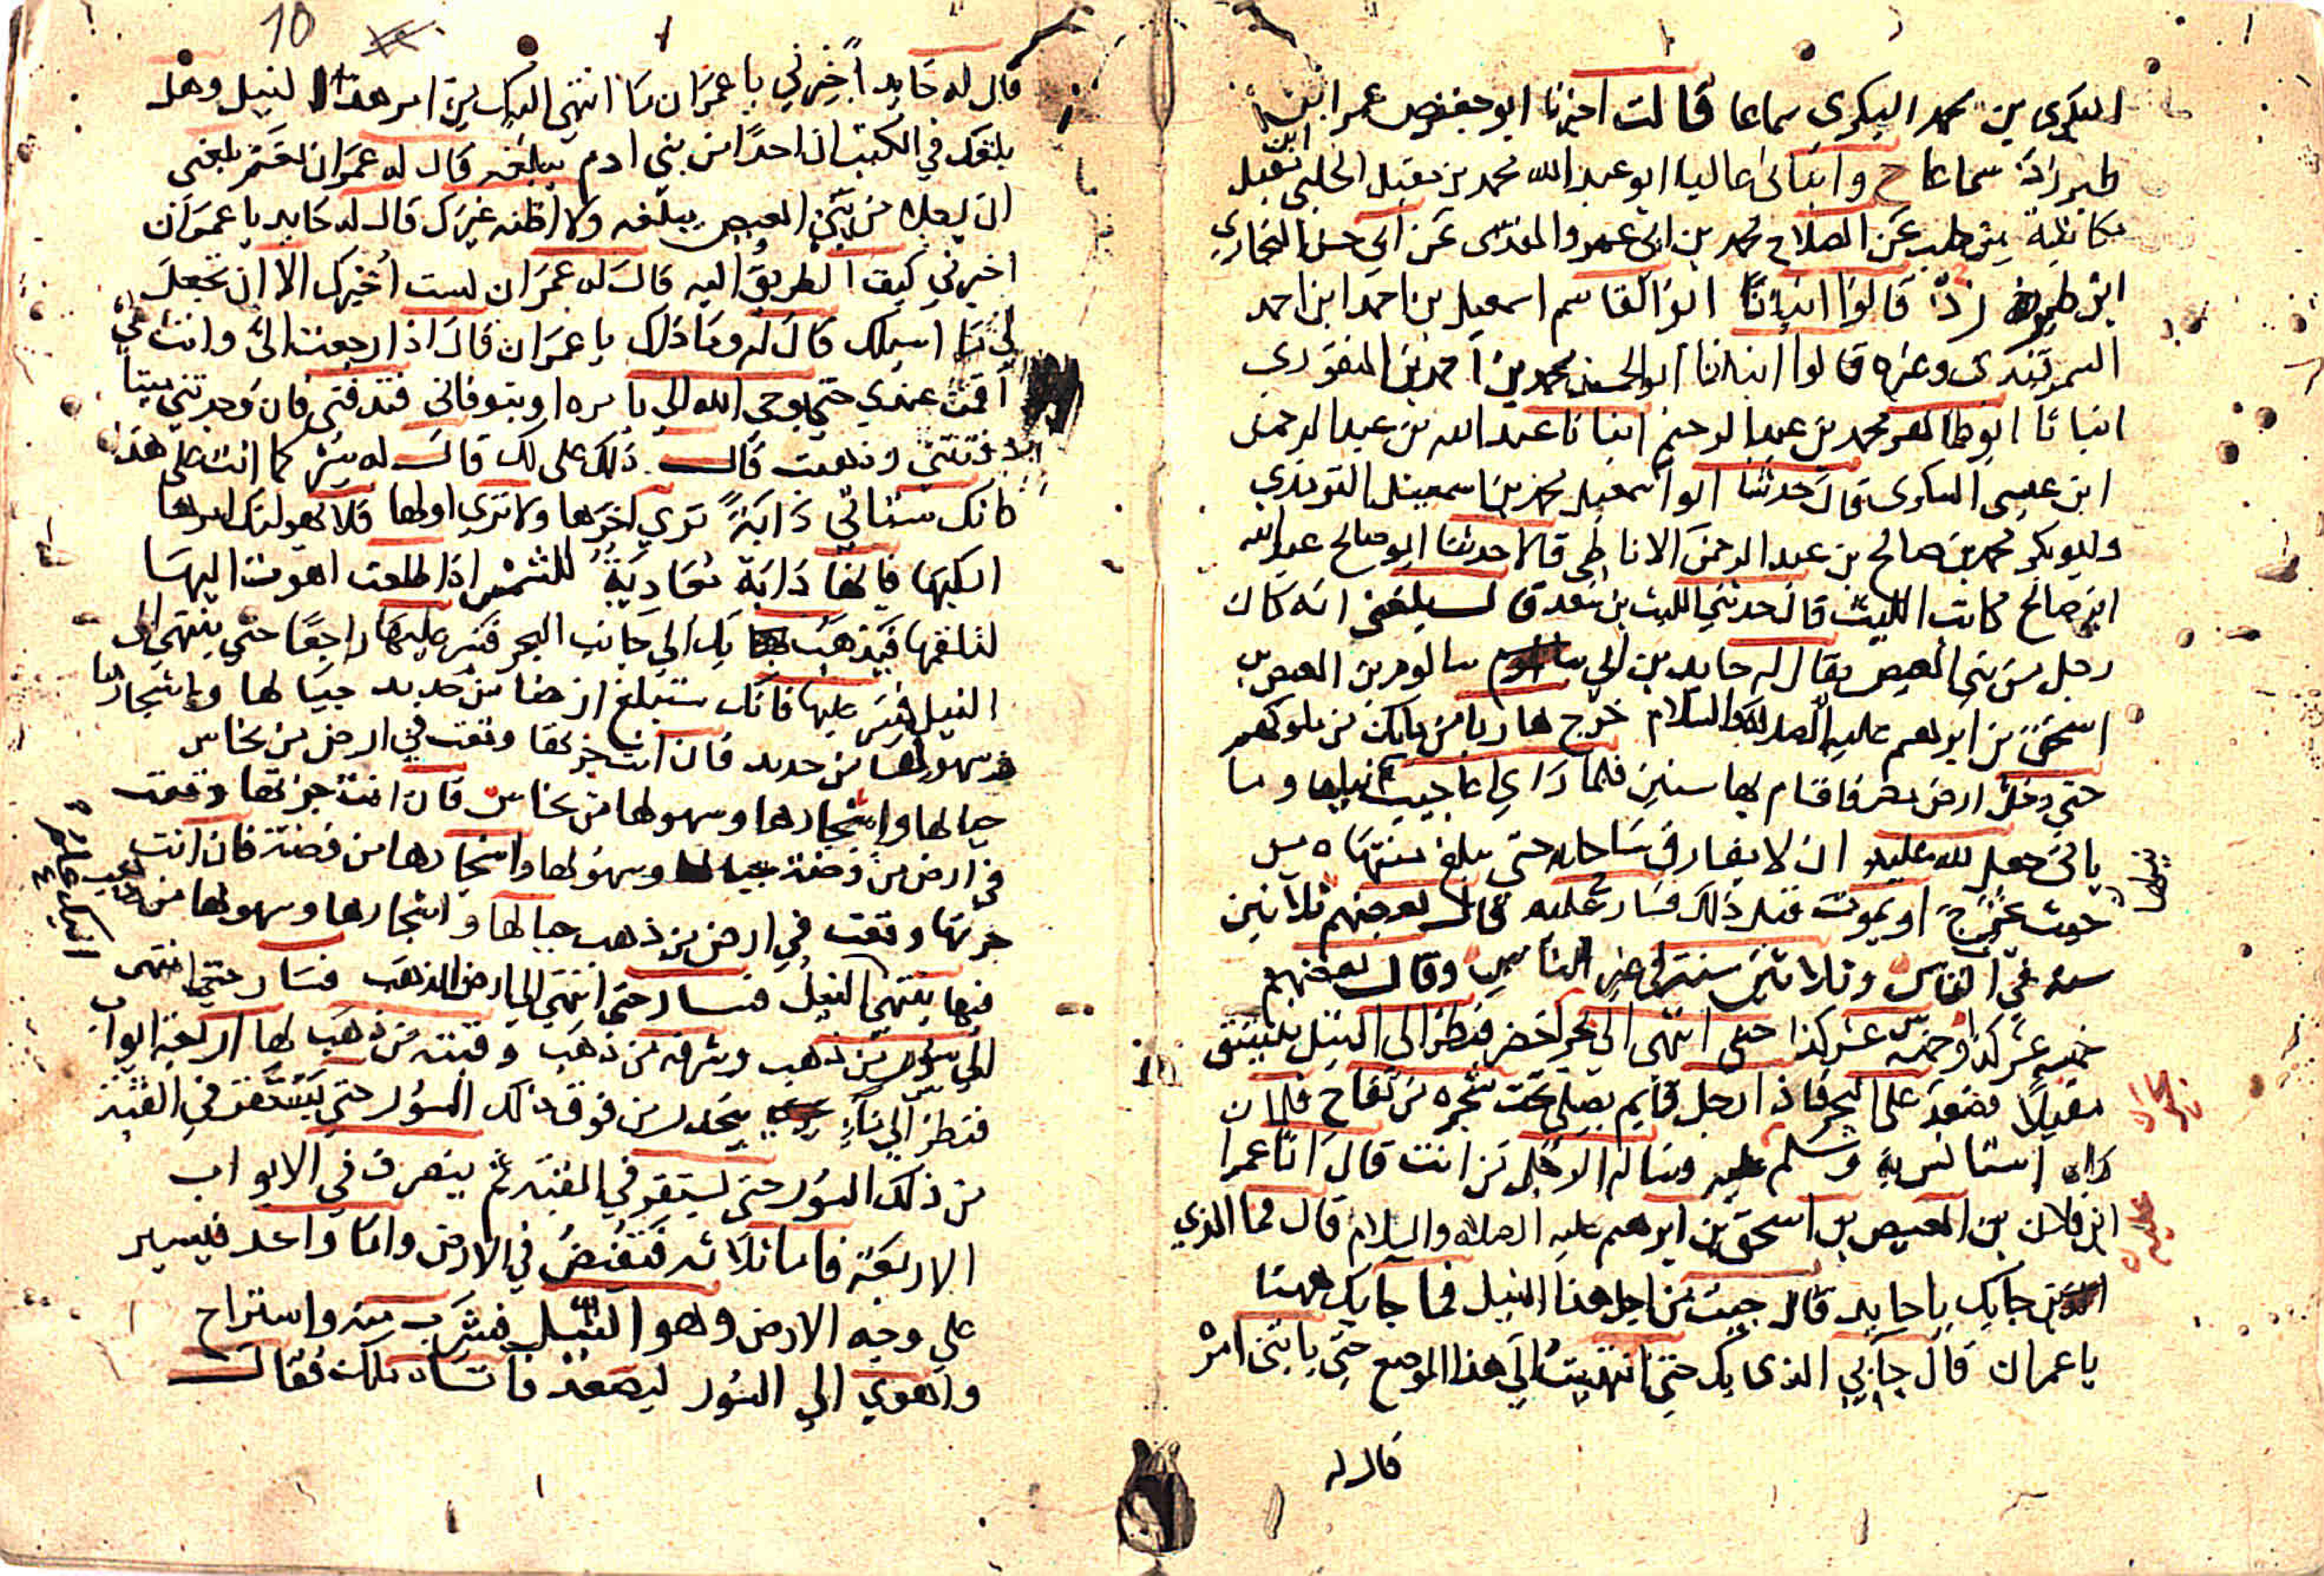 البكري بن محمد البكري سماعا قالت اخبرنا ابو حفص عمر ابن
طبرزاد سماعا ح وانباني عاليا ابو عبد الله محمد بن مقبل الحلبي
مكاتبة من حلب عن الصلاح محمد بن ابي عمر والمقدسي عن ابي حسن البخاري
ابن طبرزد قالوا انبانا ابو القاسم اسمعيل بن احمد ابن احمد
السمرقندي وغيره قالوا انبانا ابو الحسين محمد بن احمد بن المنقوري
انبانا ابو طاهر محمد بن عبد الرحيم انبانا عبد الله بن عبد الرحمن
ابن عيسى السكرى قال حدثنا ابو اسمعيل محمد بن اسمعيل التومذي
وابو بكر محمد بن صالح بن عبد الرحمن الانماطي قالا حدثنا ابو صالح عبد الله
ابن صالح كاتب الليث قال حدثني الليث بن سعد قال بلغني انه كان
رجل من بني العيص يقال له حايد بن ابي سالوم بن العيص بن
اسحق بن ابرهيم عليه الصلاة والسلام خرج هاربا من ملك من ملوكهم
حتى دخل ارض مصر فاقام بها سنين فلما راي اعاجيب نيلها وما
ياتي جعل لله عليه ان لا يفارق ساحله حتى يبلغ منتهاه من
حيث يخرج او يموت قبل ذلك فسار عليه قال بعضهم ثلاثين
سنة في الناس وثلاثين سنة في غير الناس وقال بعضهم
خمسة عشر كذا وخمسة عشر كذا حتى انتهى الى بحر اخضر فنظر الى النيل ينشق
مقبلا فصعد على البحر فاذا رجل قايم يصلي تحت شجره من تفاح فلما ان
راه استانس به وسلم عليه وساله الرجل من انت قال انا عمران
ابن فلان بن العيص بن اسحق بن ابرهيم عليه الصلاة والسلام قال فما الذي
جا بك يا حايد قال جيت من اجل هذا النيل فما جا بك هنا
يا عمران قال جا بي الذى جا بك حتى انتهيت الى هذا الموضع حتى ياتيني امر
قال له
10
قال له حايد اخبرني يا عمران ما انتهى اليك من امر هذا النيل وهل
بلغك في الكتب ان احدا من بني ادم يبلغه قال له عمران نعم بلغني
ان رجلا من بني العيص يبلغه ولا اظنه غيرك قال له حايد يا عمران
اخبرني كيف الطريق اليه قال له عمران لست اخبرك الا ان تجعل
لي ما اسالك قال له وما ذلك يا عمران قال اذا رجعت الي وانا حي
اقمت عندي حتى يوحي الله الي بامره او يتوفاني فتدفني فان وجدتني ميتا
دفنتني وذهبت قال ذلك علي لك قال له سر كما انت على هذا
فانك ستاتي دابة تري اخرها ولا تري اولها فلا يهولنك امرها
اركبها فانها دابة معادية للشمس اذا طلعت اهوت اليها
لتلقمها فيذهب بك الى جانب البحر فسر عليها راجعا حتى ينتهي الى
النيل فسر عليها فانك ستبلغ ارضا من حديد جبالها واشجارها
وسهولها من حديد فان انت جزتها وقعت في ارض من نحاس
جبالها واشجارها وسهولها من نحاس فان انت جزتها وقعت
في ارض من فضة جبالها وسهولها واشجارها من فضة فان انت
جزتها وقعت في ارض من ذهب جبالها واشجارها وسهولها من ذهب
فيها ينتهي اليك علم النيل فسار حتى انتهى الى ارض الذهب فسار حتى انتهى
الى سور من ذهب وشرفه من ذهب وقبة من ذهب لها اربعة ابواب
فنظر الى ماء ينحدر من فوق ذلك السور حتى يستقر في القبة
من ذلك السور حتى يستقر في القبة ثم ينصرف في الابواب
الاربعة فاما ثلاثه فتغيض في الارض واما واحد فيسير
على وجه الارض وهو النيل فشرب منه واستراح
واهوي الى السور ليصعد فاتاه ملك فقال